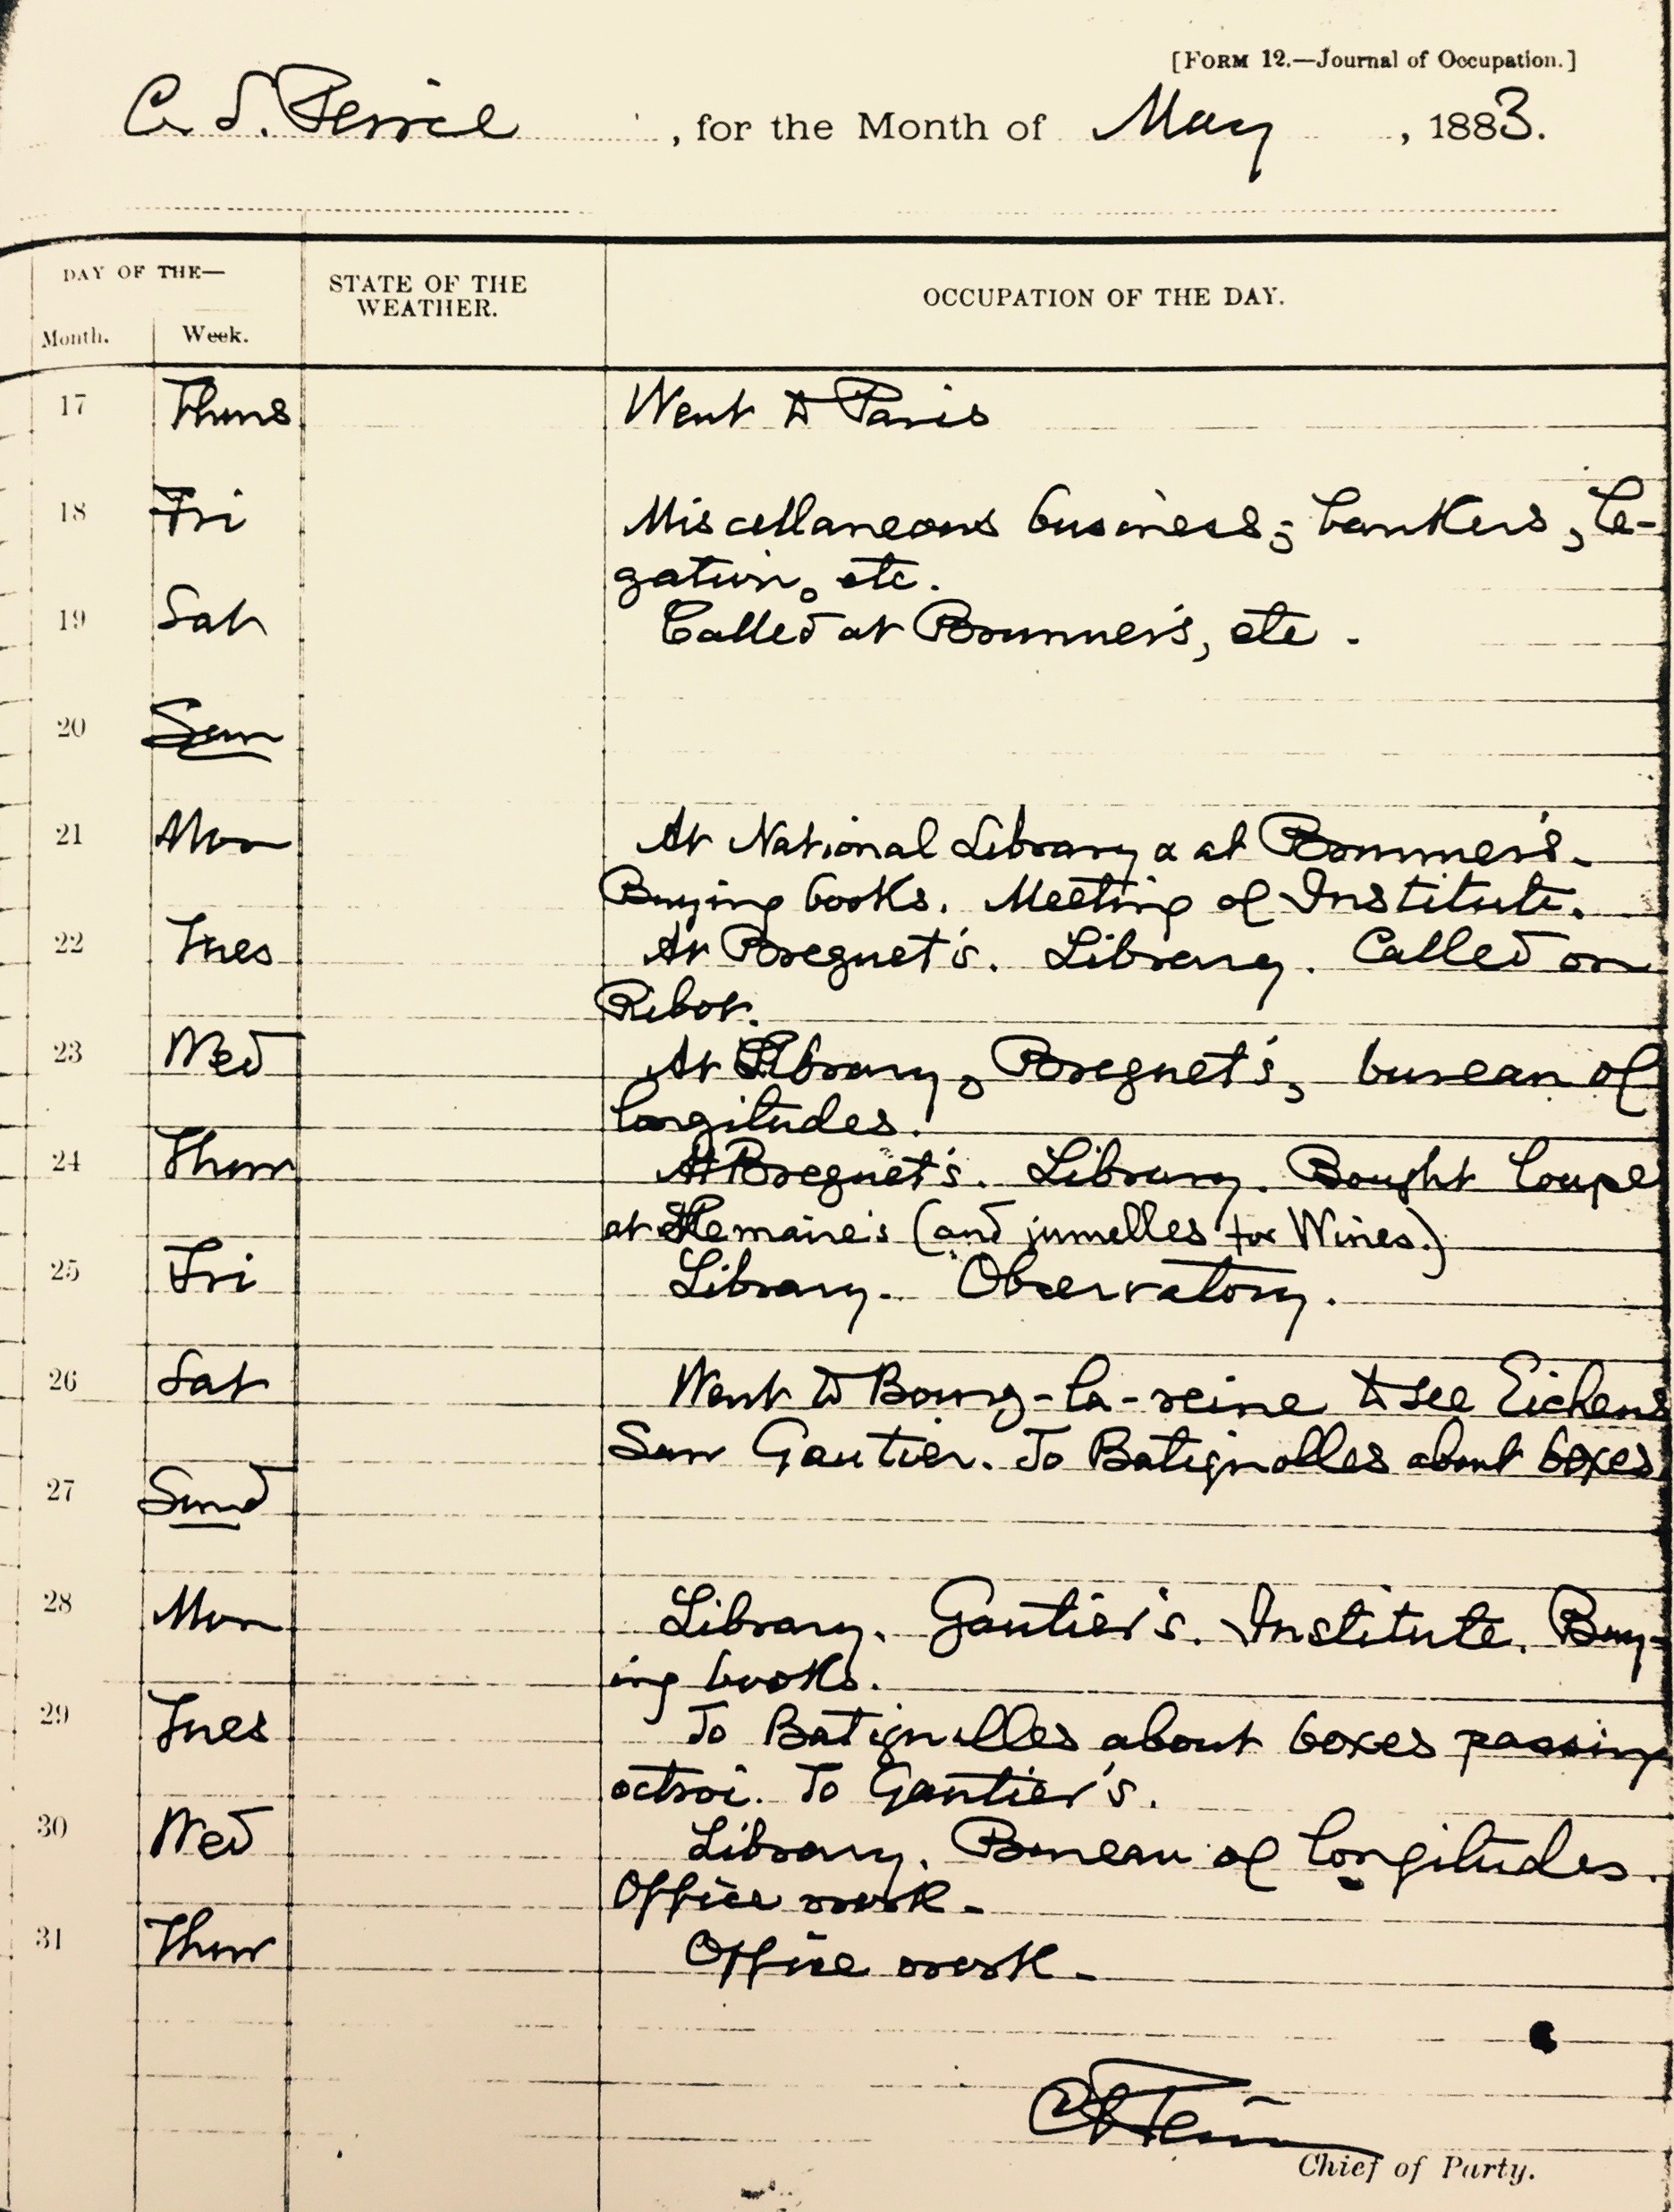 [FORM 12.—Journal of Occupation.]
C. S. Peirce, for the Month of May, 1883.
DAY OF THE—
Month. Week.
STATE OF THE WEATHER.
OCCUPATION OF THE DAY.
17 Thurs Went to Paris
18 Fri Miscellaneous business; bankers, le-
gation, etc.
19 Sat Called at Brunner's, etc.
20 Sun
21 Mon At National Library & at Brunner's.
Buying books. Meeting of Institute.
22 Tues At Breguet's. Library. Called on
Ribot.
23 Wed At Library, Breguet's, bureau of
longitudes.
24 Thur At Breguet's. Library. Bought loupe
at Lemaire's (and jumelles for Wines.)
25 Fri Library. Observatory.
26 Sat Went to Bourg-la-reine to see Eichens
Saw Gautier. To Batignolles about boxes
27 Sund
28 Mon Library. Gautier's. Institute. Buy-
ing books.
29 Tues To Batignolles about boxes passing
octroi. To Gautier's.
30 Wed Library. Bureau of longitudes.
Office work.
31 Thur Office work.
CSPeirce
Chief of Party.